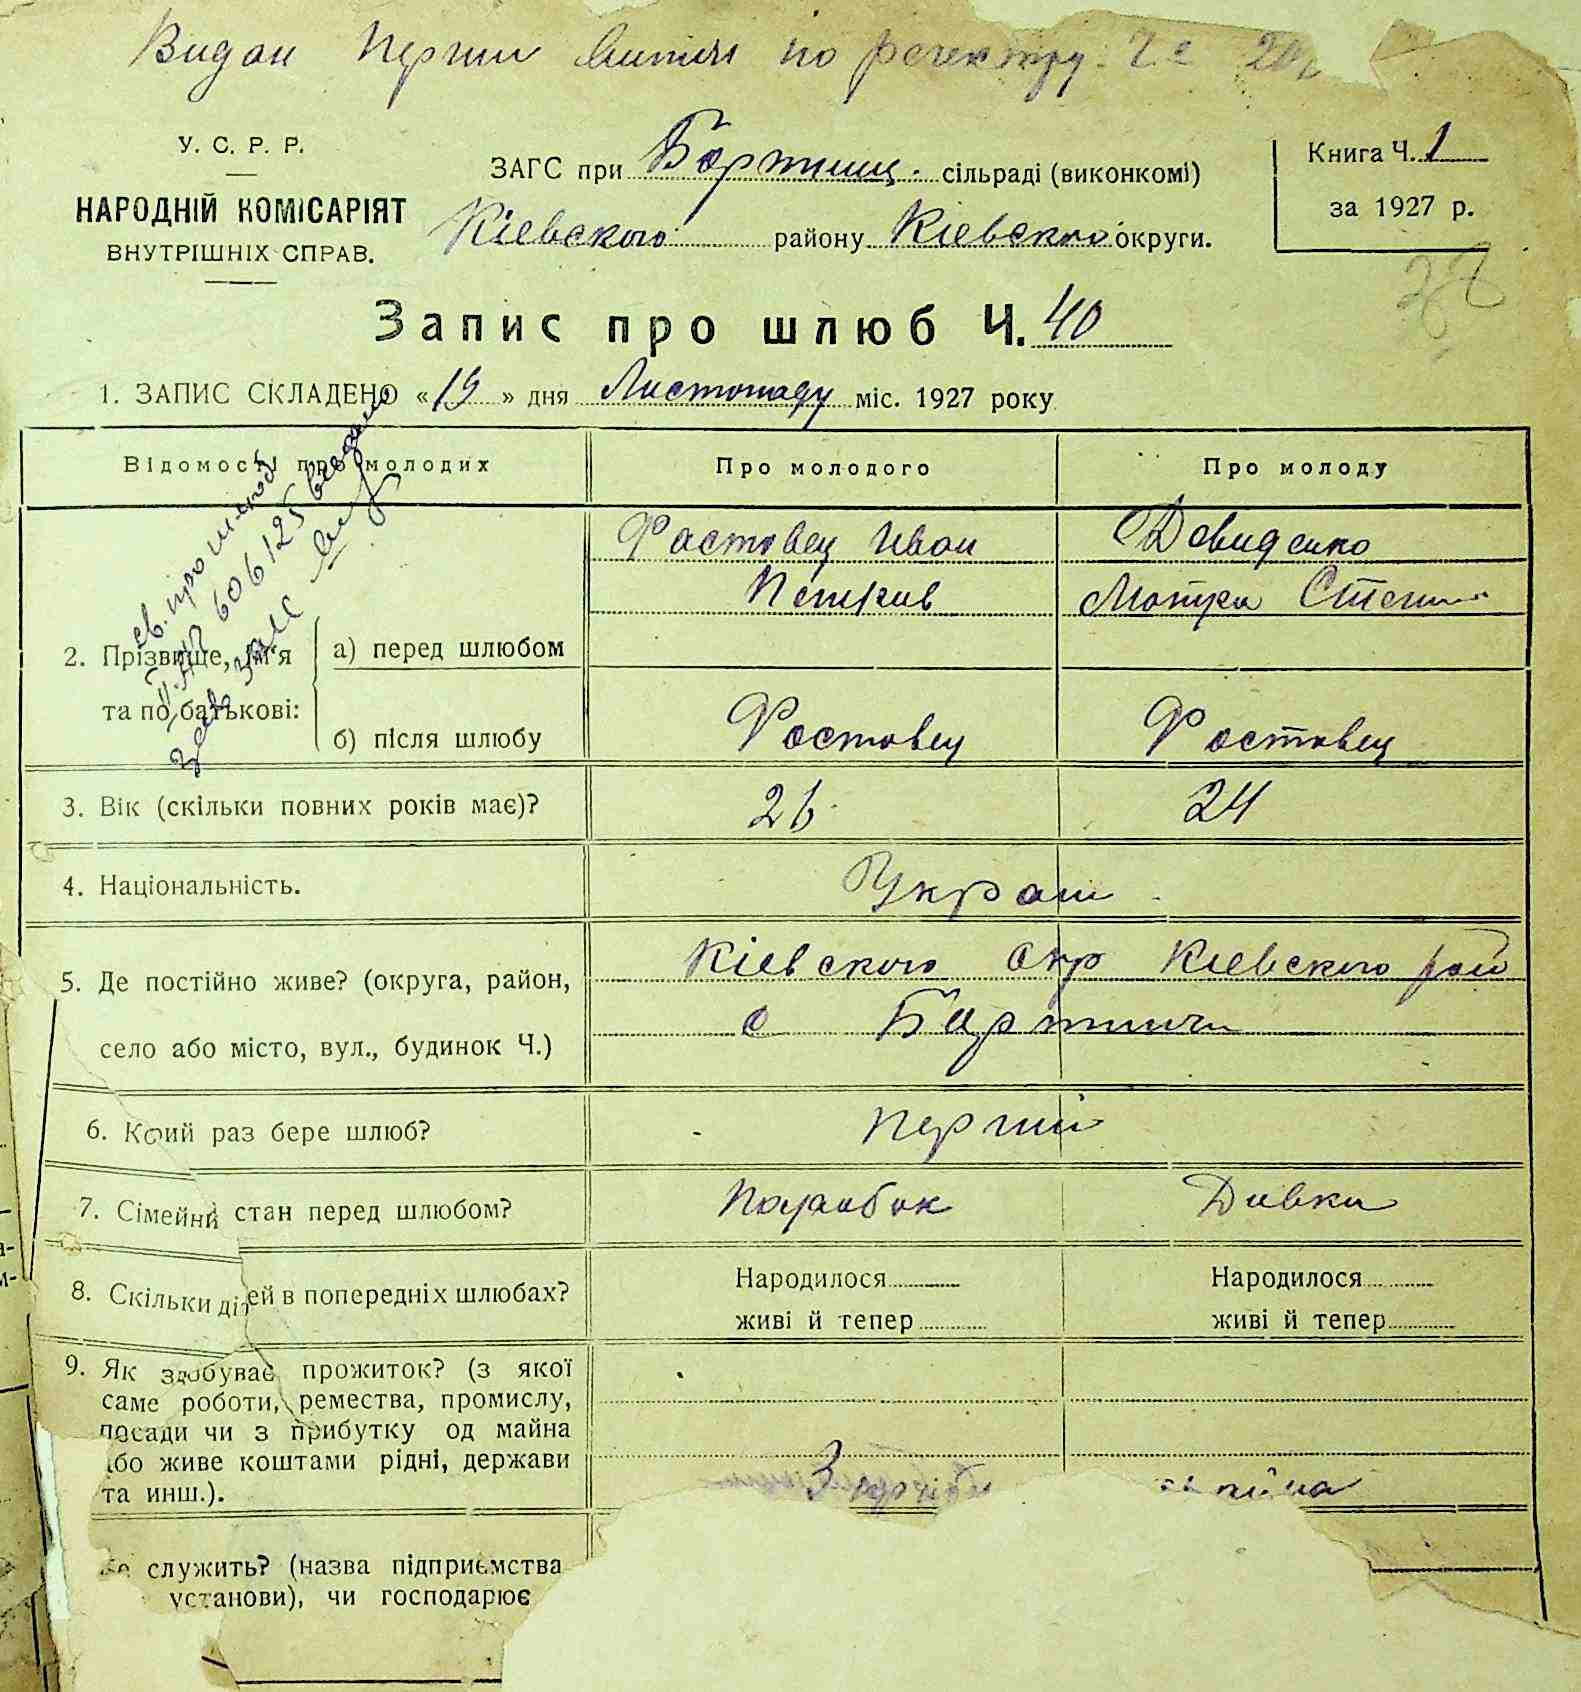 Видан Перши витяг по реєктру Ч.
У. С. Р. Р.
НАРОДНІЙ КОМІСАРІЯТ
ВНУТРІШНІХ СПРАВ.
ЗАГС при Бортниц. сільраді (виконкомі)
Кіевского району Кіевского округи.
Книга Ч. 1
за 1927 р.
Запис про шлюб Ч. 40
1. ЗАПИС СКЛАДЕНО «19» дня Листопаду міс. 1927 року
Відомості про молодих Про молодого Про молоду
Фастовец Иван Довиденко
Петрив Мотря
2. Прізвище, ім'я та по батькові:
а) перед шлюбом
б) після шлюбу Фастовец Фастовец
3. Вік (скільки повних років має)? 26 24
4. Національність. Украін
5. Де постійно живе? (округа, район, Кіевского Окр Кіевского рай
село або місто, вул., будинок Ч.) с Бортничи
6. Котрий раз бере шлюб? Перший
7. Сімейний стан перед шлюбом? Парубок Дивка
8. Скільки дітей в попередніх шлюбах? Народилося Народилося
живі й тепер живі й тепер
9. Як здобуває прожиток? (з якої
саме роботи, ремества, промислу,
посади чи з прибутку од майна
або живе коштами рідні, держави
та инш.). З
служить? (назва підприємства
установи), чи господарює
св. про шлюб
II-АП 606125 видано
Зав ЗАГС